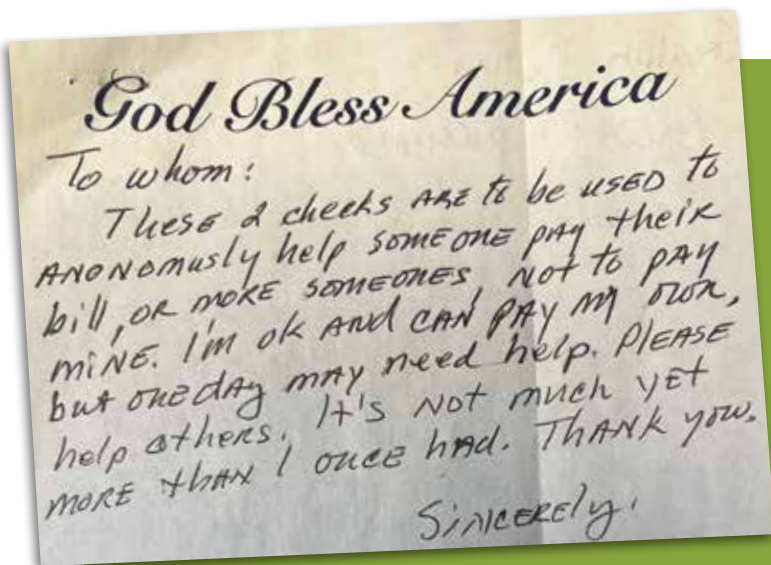 God Bless America
To whom:
These 2 checks ARE to be USED to
ANONOMUSly help SOMEONE PAY their
bill, OR MORE SOMEONES, NOT to PAY
MINE. I'm ok AND CAN PAY MY OWN,
but ONE DAY MAY need help. PlEASE
help others. It's NOT much YET
MORE than I ONCE HAD. THANK you.
SiNCERELy,